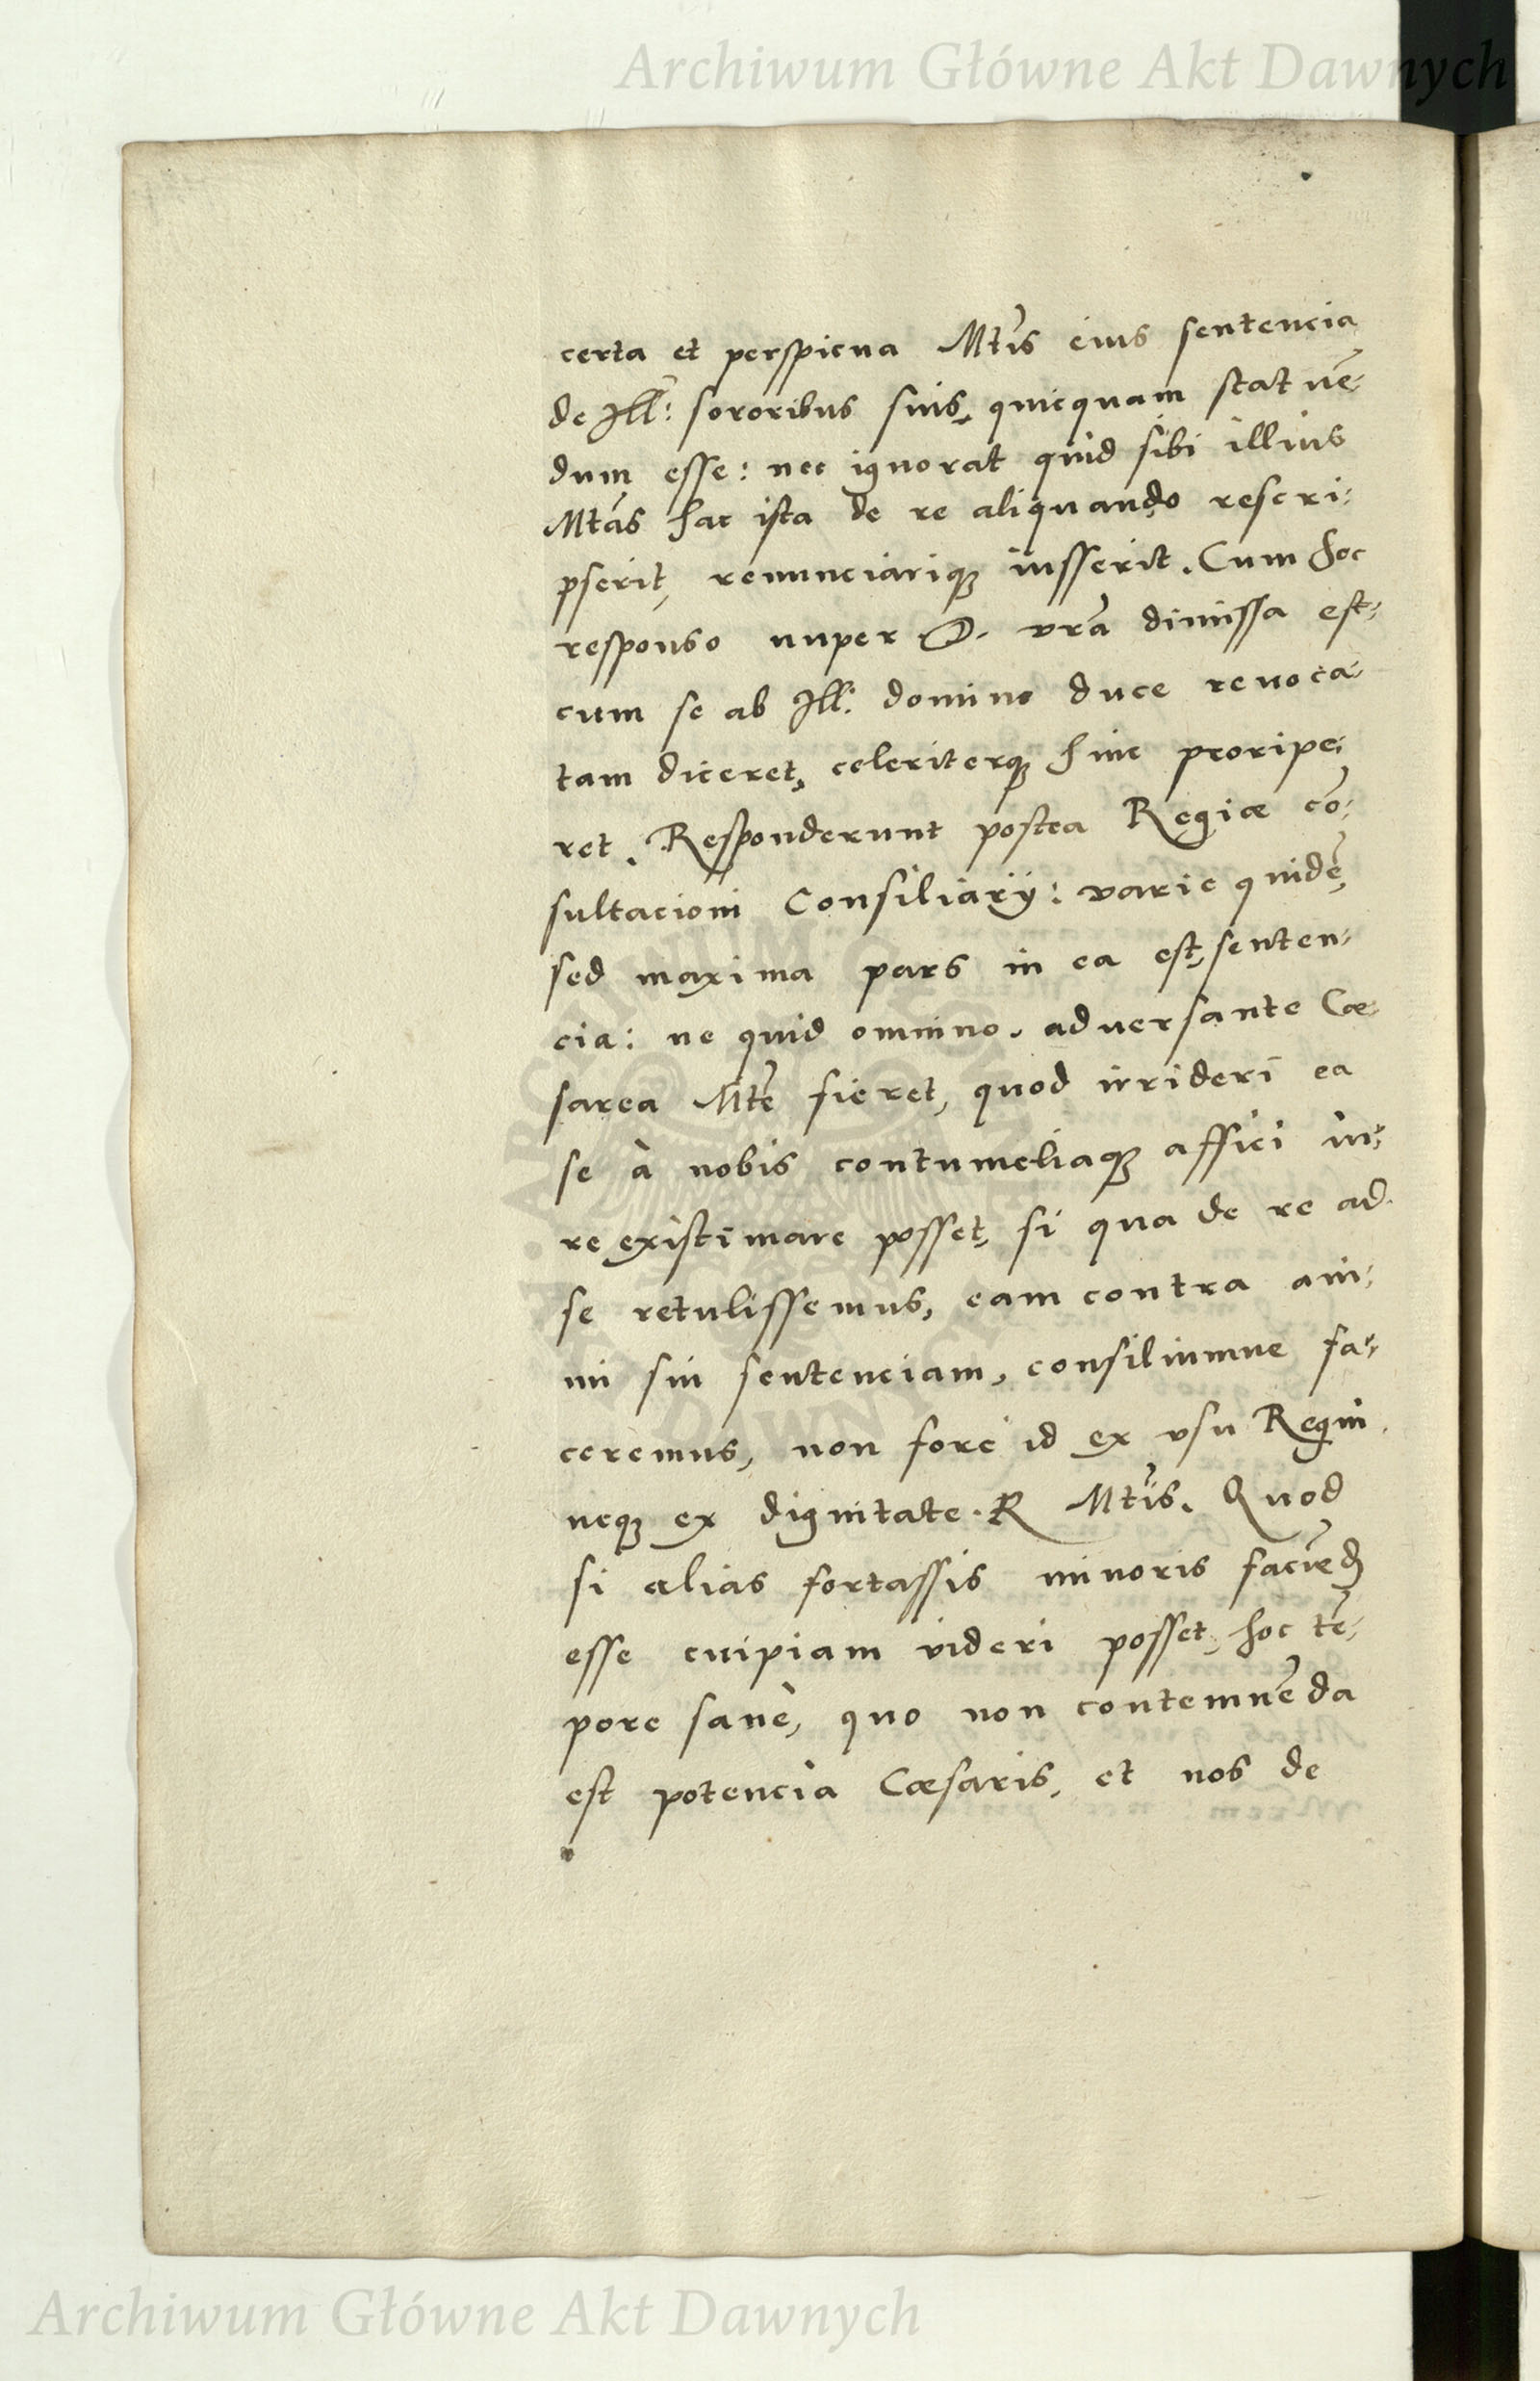 Archiwum Główne Akt Dawnych
certa et perspicua Mtis eius sentencia
de Ill: sororibus suis, quicquam statuē-
dum esse: nec ignorat quid sibi illius
Mtas hac ista de re aliquando rescri-
pserit, renunciarique iusserit. Cum hoc
responso nuper D. vrā dimissa est,
cum se ab Ill. domino duce reuoca-
tam diceret, celeriterque hinc proripe-
ret. Responderunt postea Regiæ cō-
sultacioni Consiliarij: varie quidē,
sed maxima pars in ea est, senten-
cia: ne quid omnino, aduersante Cæ-
sarea Mte fieret, quod irrideri ea
se à nobis contumeliaque affici iu-
re existimare posset, si qua de re ad
se retulissemus, eam contra ani-
mi sui sentenciam, consiliumue fa-
ceremus, non fore id ex vsu Regni,
neque ex dignitate R Mtis. Quod
si alias fortassis minoris faciēd
esse cuipiam videri posset, hoc tē-
pore sanè, quo non contemnēda
est potencia Cæsaris, et nos de
Archiwum Główne Akt Dawnych